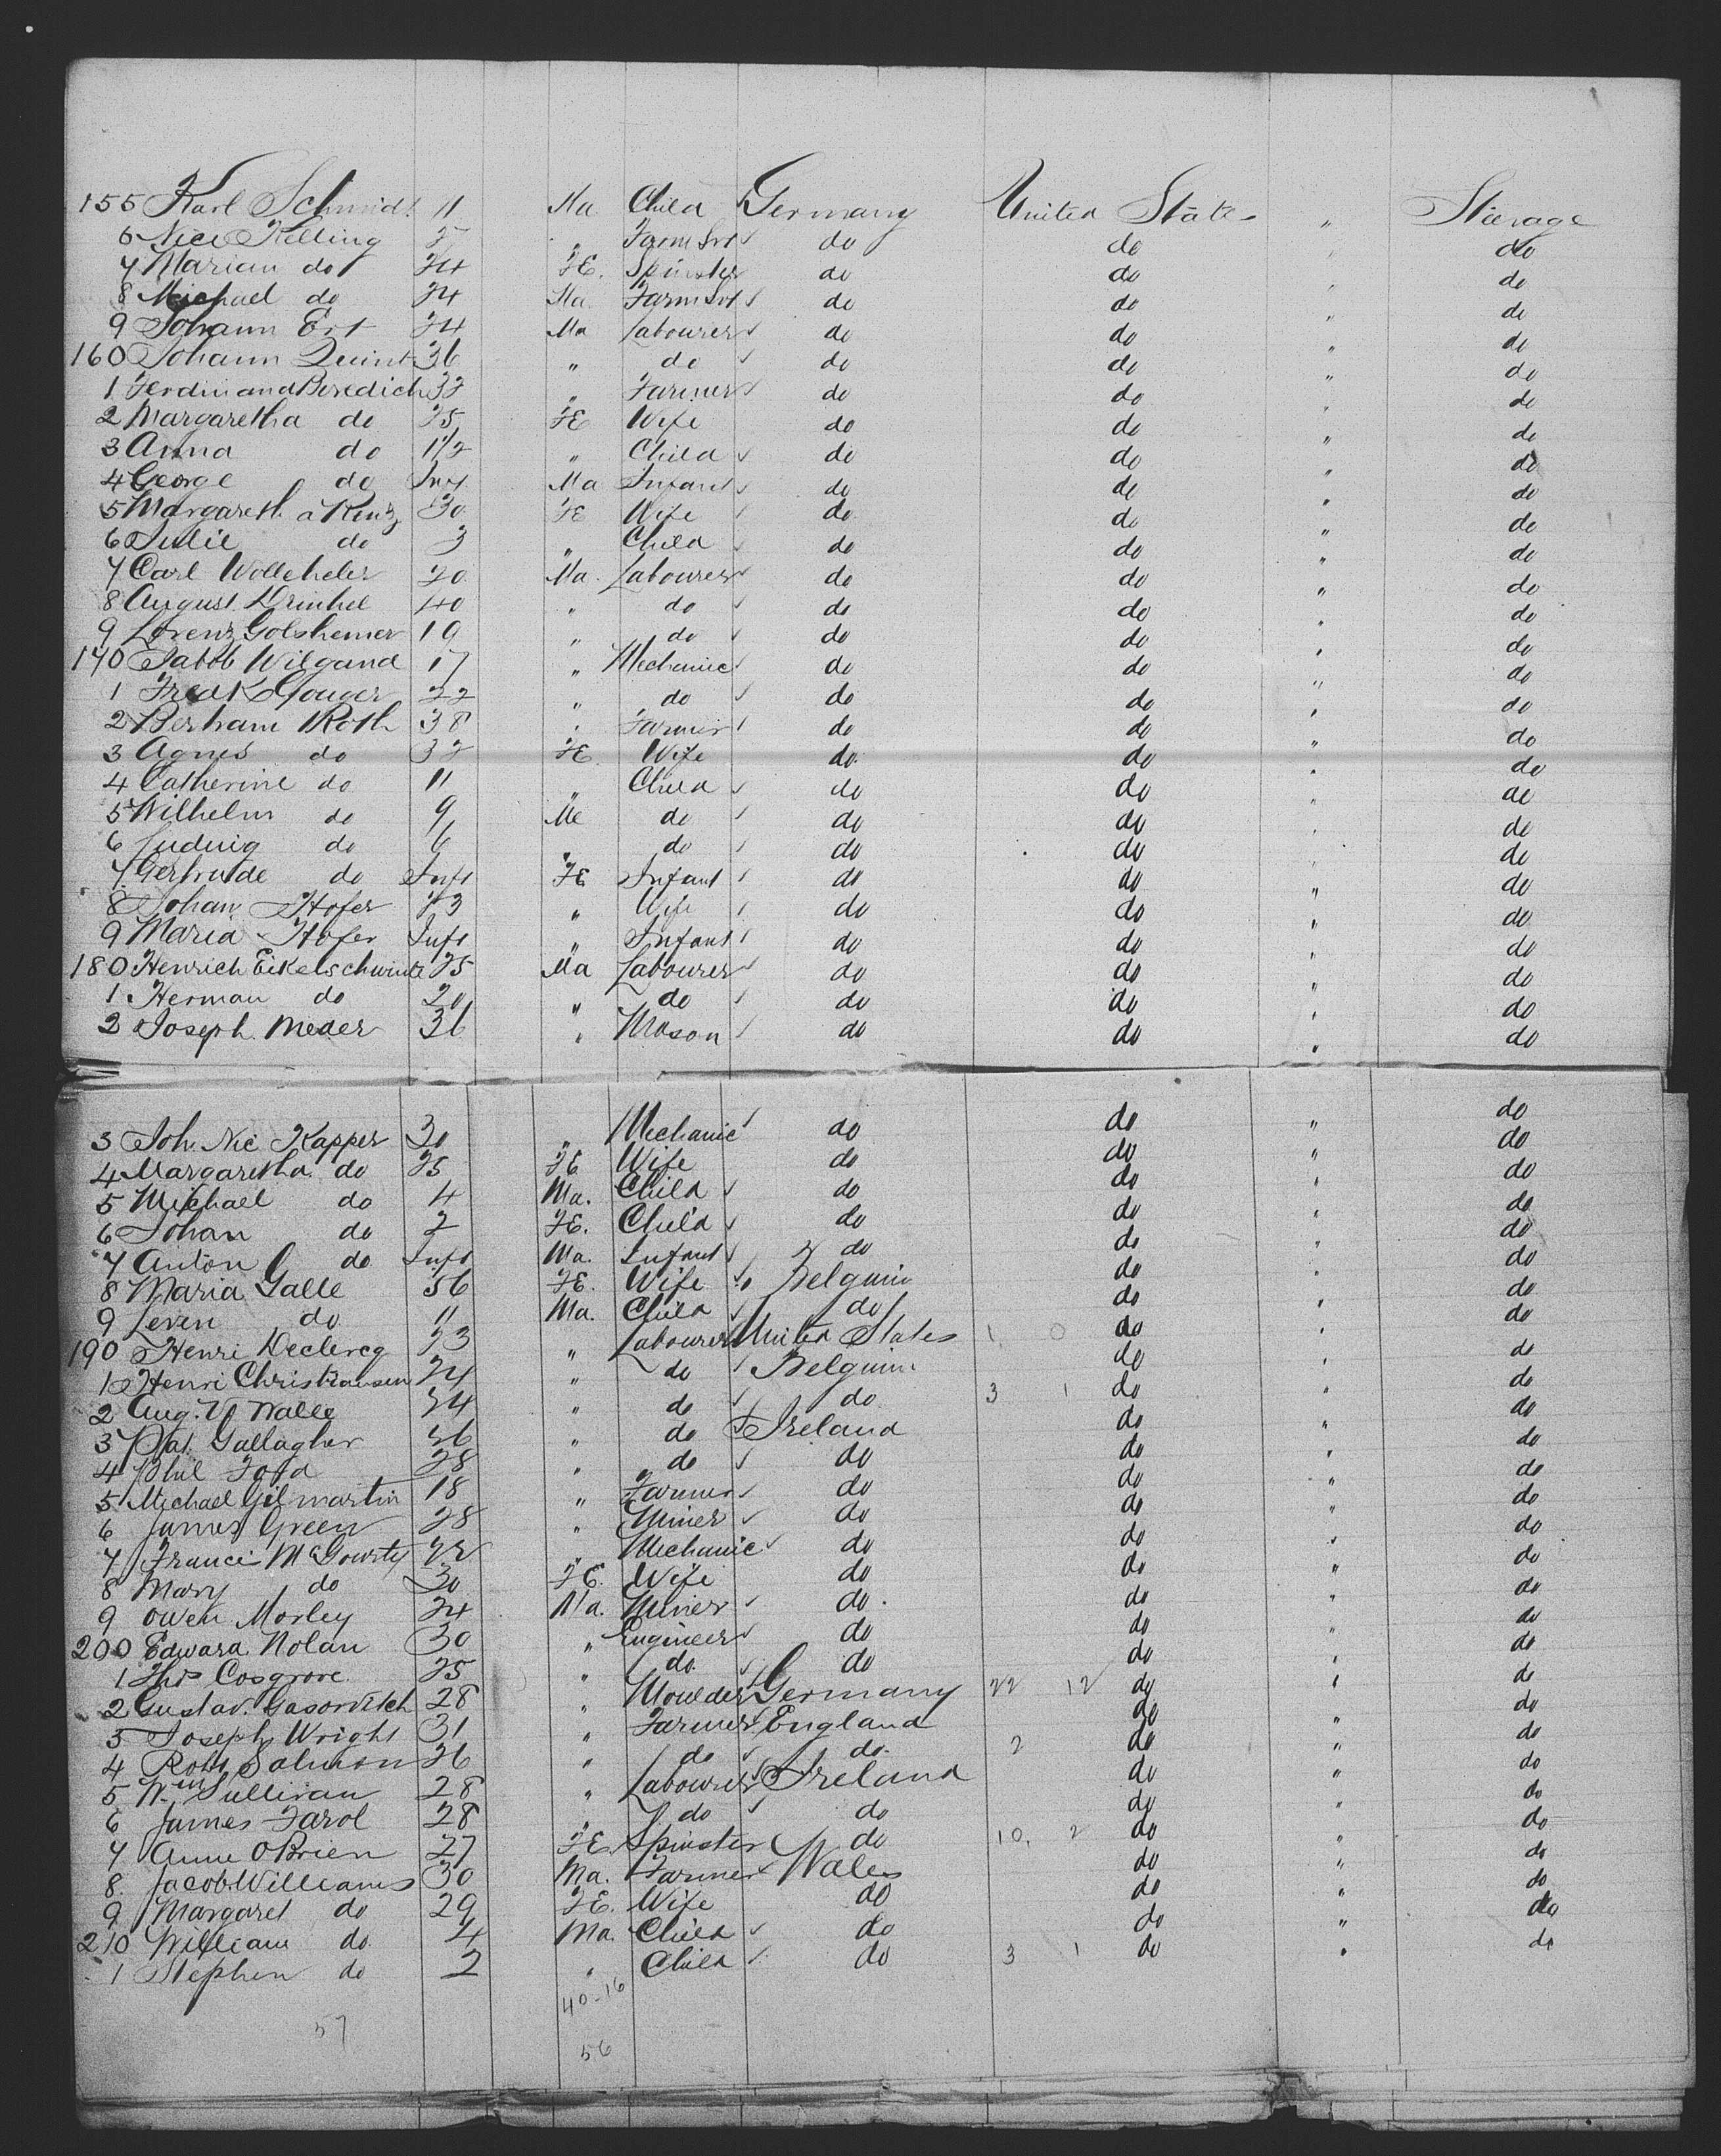 155 Karl Schmidt 11 Ma Child Germany United States " Steerage
6 Nico Kelling " Farm Svt do do " do
7 Marian do 24 FE. Spinster do do " do
8 Michael do 24 Ma Farm Svt do do " do
9 Johann Ert 24 Ma Labourer do do " do
160 Johann Quint 36 " do do do " do
1 Ferdinand Beredich 32 " Farmer do do " do
2 Margaretha do 25 FE Wife do do " do
3 Anna do 1 1/2 " Child do do " do
4 George do Inf Ma Infant do do " do
5 Margareth a Kintz 30 FE Wife do do " do
6 Julie do 3 " Child do do " do
7 Carl 20 Ma. Labourer do do " do
8 August 40 " do do do " do
9 Lorenz Golshemer 19 " do do do " do
170 Jakob Wilgand 17 " Mechanic do do " do
1 22 " do do do " do
2 Bertram Roth 38 " Farmer do do " do
3 Agnes do 32 FE Wife do do " do
4 Catherine do 11 " Child do do " do
5 Wilhelm do 9 Me do do do " do
6 Ludwig do 6 " do do do " do
7 Gertrude do Inft FE Infant do do " do
8 Johan Hofer 23 " Wife do do " do
9 Maria Hofer Inft " Infant do do " do
180 Henrich Eikelschwint 25 Ma Labourer do do " do
1 Herman do 20 " do do do " do
2 Joseph Meder 36 " Mason do do " do
3 Joh. Nic Kapper 30 " Mechanic do do " do
4 Margaretha do 25 FE Wife do do " do
5 Michael do 4 Ma. Child do do " do
6 Johan do 2 FE. Child do do " do
7 Anton do Inft Ma. Infant do do " do
8 Maria Galle 56 FE. Wife Belguim do " do
9 Leven do 11 Ma. Child do do " do
190 Henri Declercq 23 " Labourer United States 1 0 do " do
1 Henri Christiaensen 24 " do Belguim do " do
2 Aug. V Walle 24 " do do 3 1 do " do
3 Pat. Gallagher 26 " do Ireland do " do
4 Phil Ford 28 " do do do " do
5 Michael Gilmartin 18 " Farmer do do " do
6 James Green 28 " Miner do do " do
7 Francis McGowrty 22 " Mechanic do do " do
8 Mary do 30 FE. Wife do do " do
9 Owen Morley 24 Ma. Miner do do " do
200 Edward Nolan 30 " Engineer do do " do
1 Thos Cosgrove 25 " do do do " do
2 Gustav. Gasorvitch 28 " Moulder Germany 22 12 do " do
3 Joseph Wright 31 " Farmer England do " do
4 Robt Salmon 26 " do do. 2 do " do
5 Wm Sullivan 28 " Labourer Ireland do " do
6 James Farol 28 " do do do " do
7 Anne OBrien 27 FE Spinster do 10. 2 do " do
8. Jacob Williams 30 Ma. Farmer Wales do " do
9 Margaret do 29 FE. Wife do do " do
210 William do. 4 Ma. Child do do " do
1 Stephen do 2 " Child do 3 1 do " do
40-16
57
56